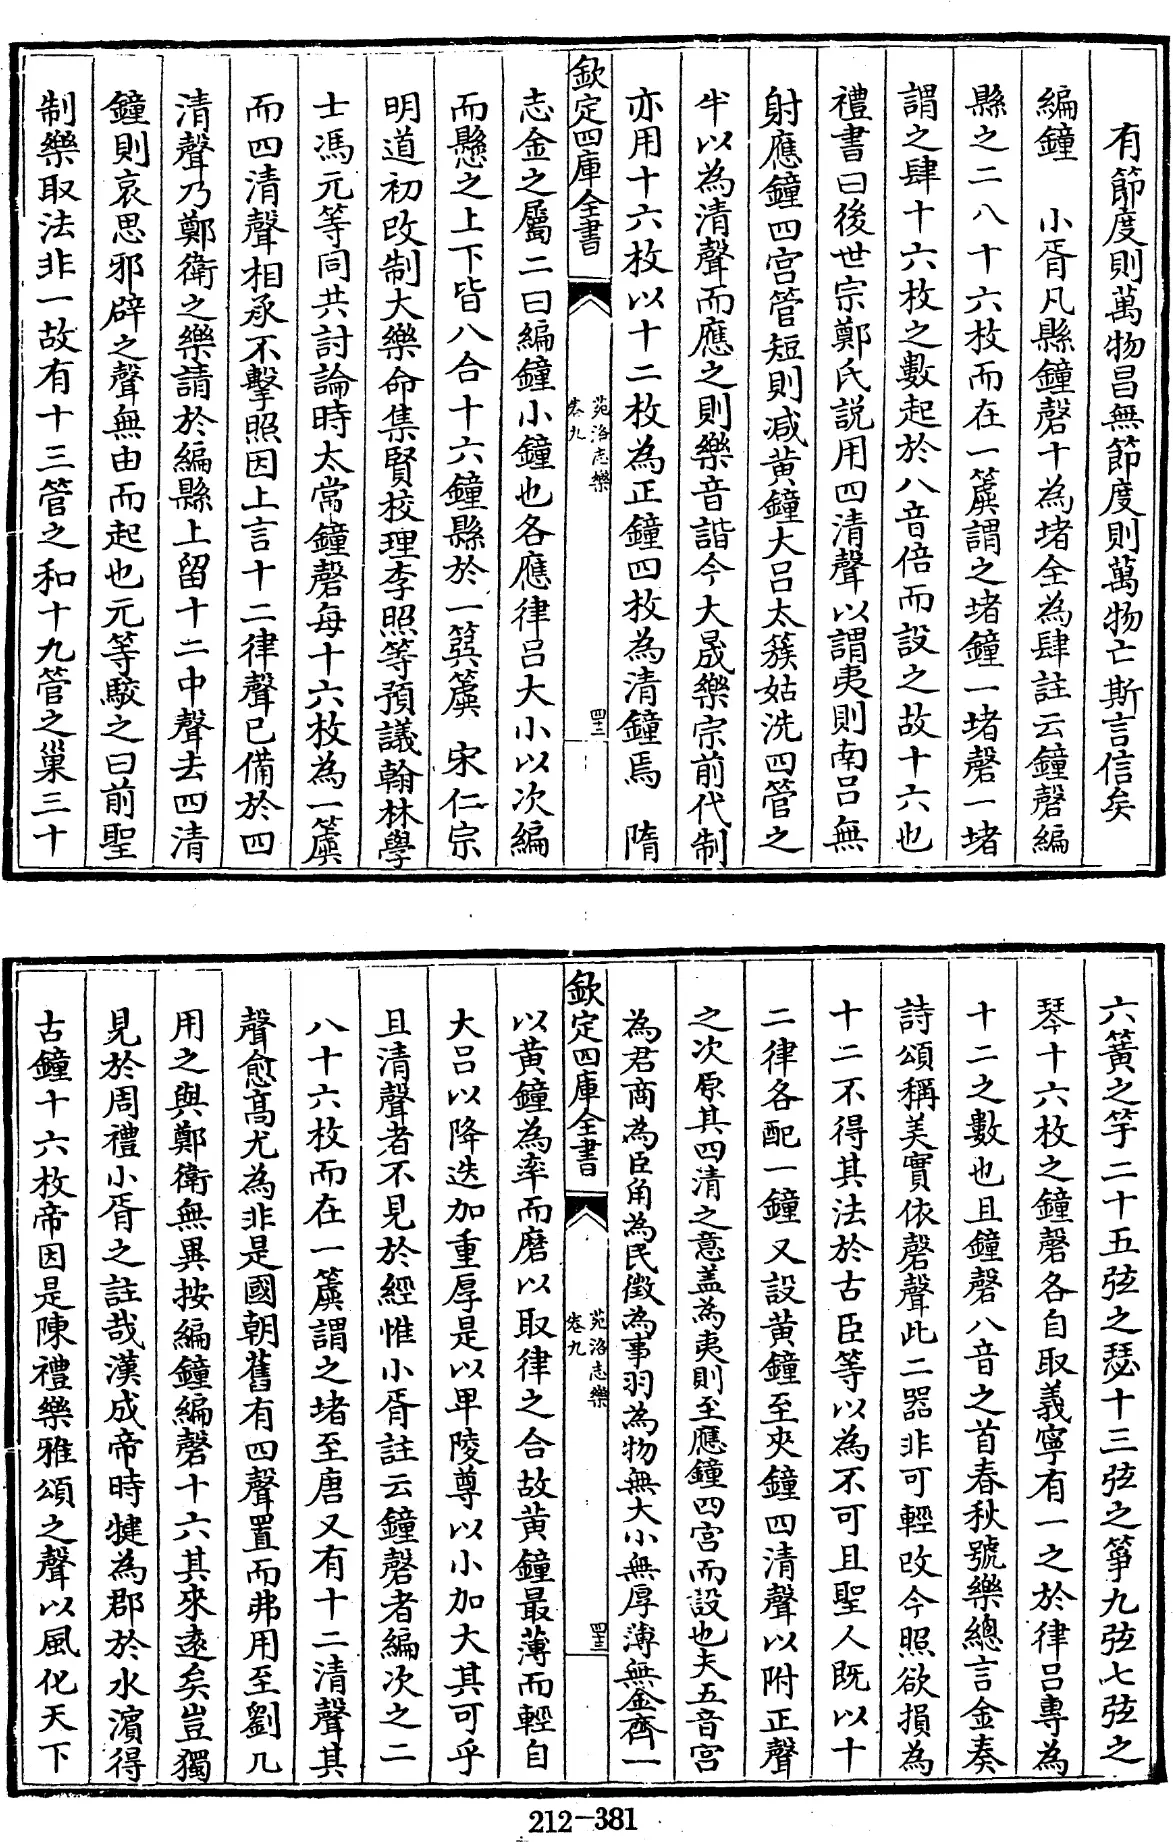 有節度則萬物昌無節度則萬物亡斯言信矣
編鐘　小胥凡縣鐘磬半為堵全為肆註云鐘磬編
縣之二八十六枚而在一簴謂之堵鐘一堵磬一堵
謂之肆十六枚之數起於八音倍而設之故十六也
禮書曰後世宗鄭氏說用四清聲以謂夷則南呂無
射應鐘四宮管短則減黃鐘大呂太簇姑洗四管之
半以為清聲而應之則樂音諧今大晟樂宗前代制
亦用十六枚以十二枚為正鐘四枚為清鐘焉　隋
欽定四庫全書
苑洛志樂
卷九
四十二
志金之屬二曰編鐘小鐘也各應律呂大小以次編
而懸之上下皆八合十六鐘縣於一簨簴　宋仁宗
明道初改制大樂命集賢校理李照等預議翰林學
士馮元等同共討論時太常鐘磬每十六枚為一簴
而四清聲相承不擊照因上言十二律聲已備於四
清聲乃鄭衛之樂請於編縣上留十二中聲去四清
鐘則哀思邪辟之聲無由而起也元等駮之曰前聖
制樂取法非一故有十三管之和十九管之巢三十
六簧之竽二十五弦之瑟十三弦之箏九弦七弦之
琴十六枚之鐘磬各自取義寧有一之於律呂專為
十二之數也且鐘磬八音之首春秋號樂總言金奏
詩頌稱美實依磬聲此二器非可輕改今照欲損為
十二不得其法於古臣等以為不可且聖人既以十
二律各配一鐘又設黃鐘至夾鐘四清聲以附正聲
之次原其四清之意盖為夷則至應鐘四宮而設也夫五音宮
為君商為臣角為民徵為事羽為物無大小無厚薄無金齊一
欽定四庫全書
苑洛志樂
卷九
四十三
以黃鐘為率而磨以取律之合故黃鐘最薄而輕自
大呂以降迭加重厚是以卑陵尊以小加大其可乎
且清聲者不見於經惟小胥註云鐘磬者編次之二
八十六枚而在一簴謂之堵至唐又有十二清聲其
聲愈高尤為非是國朝舊有四聲置而弗用至劉几
用之與鄭衛無異按編鐘編磬十六其來遠矣豈獨
見於周禮小胥之註哉漢成帝時犍為郡於水濵得
古鐘十六枚帝因是陳禮樂雅頌之聲以風化天下
212-381